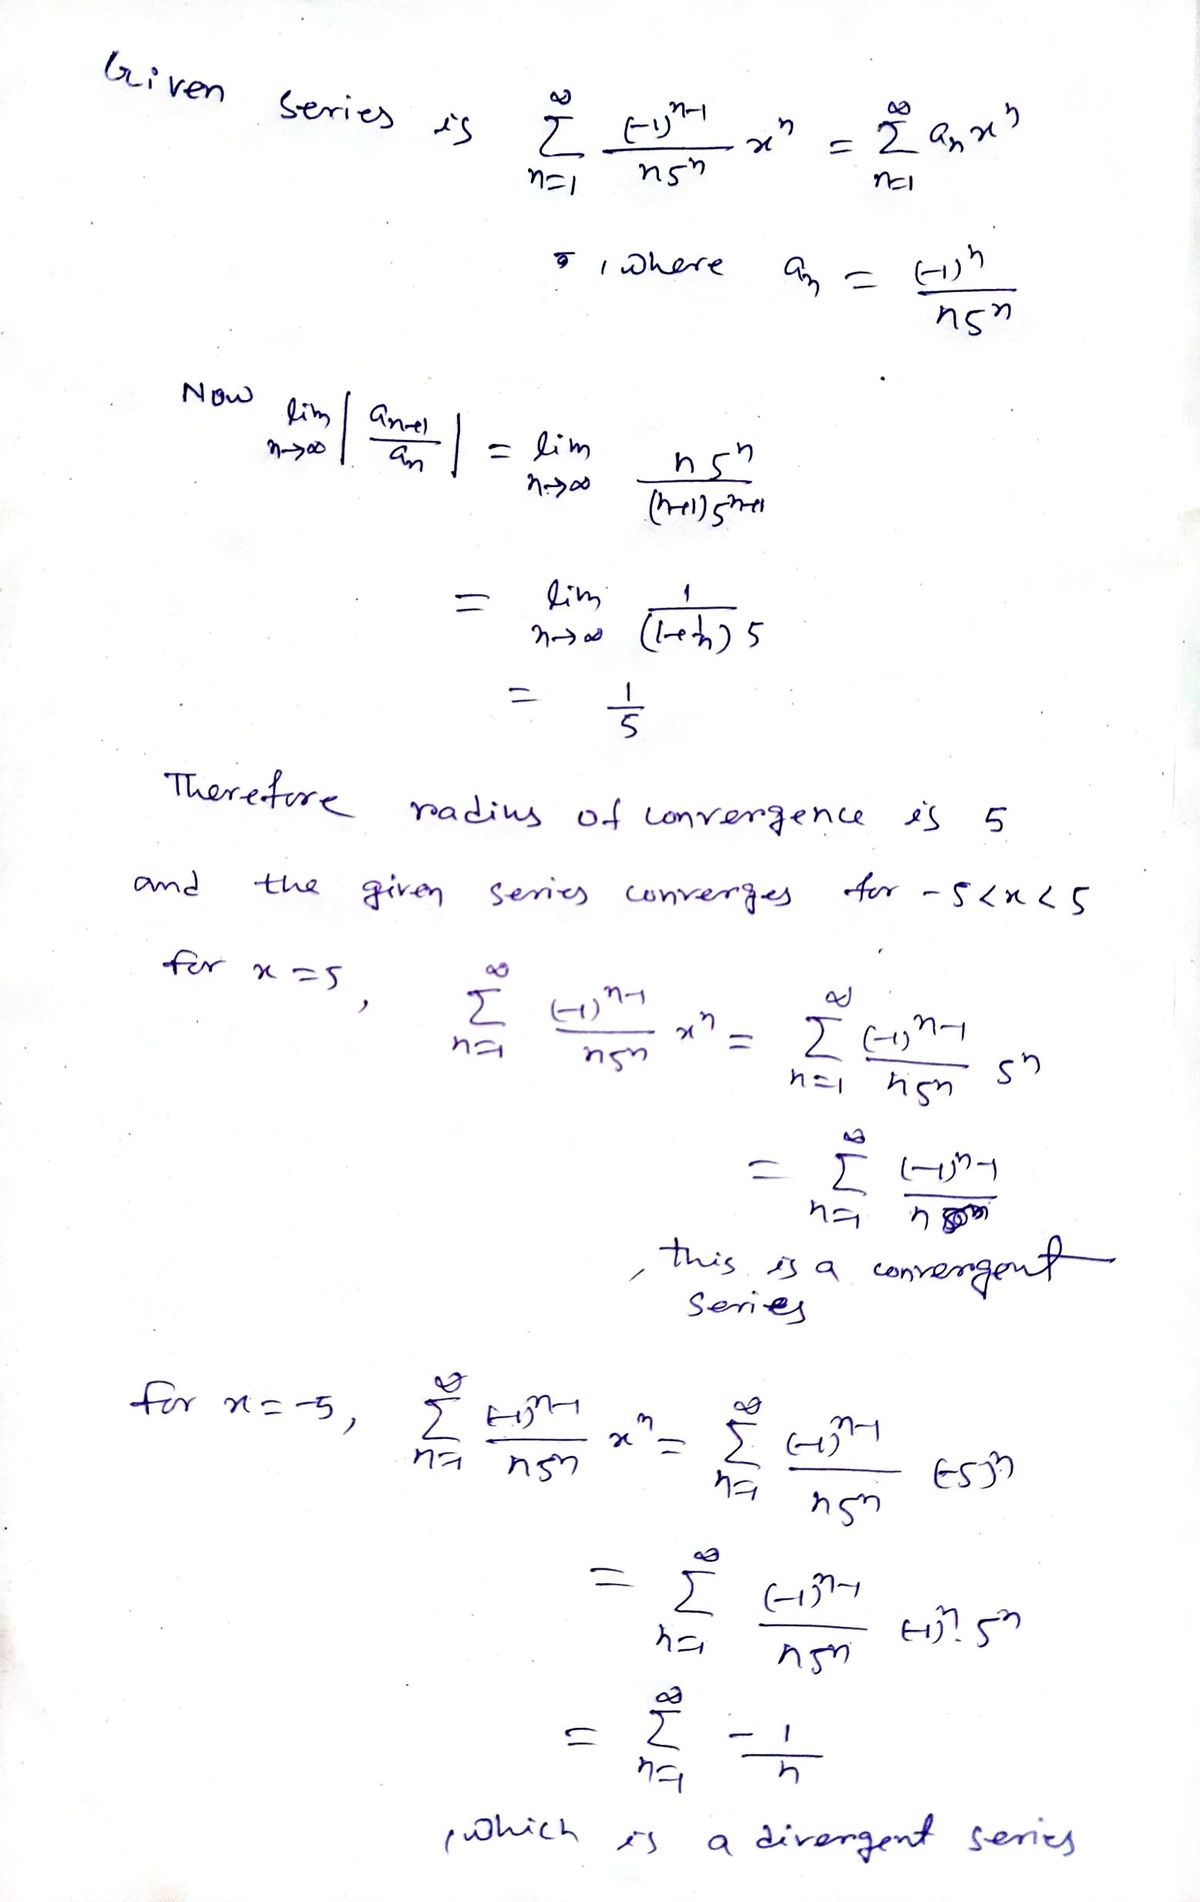 Given series is \sum_{n=1}^{\infty} \frac{(-1)^{n-1}}{n5^n} x^n = \sum_{n=1}^{\infty} a_n x^n
, where a_n = \frac{(-1)^n}{n5^n}
Now \lim_{n→∞} \left| \frac{a_{n+1}}{a_n} \right| = \lim_{n→∞} \frac{n5^n}{(n+1)5^{n+1}}
= \lim_{n→∞} \frac{1}{(1+\frac{1}{n})5}
= \frac{1}{5}
Therefore radius of convergence is 5
and the given series converges for -5<x<5
for x=5, \sum_{n=1}^{\infty} \frac{(-1)^{n-1}}{n5^n} x^n = \sum_{n=1}^{\infty} \frac{(-1)^{n-1}}{n5^n} 5^n
= \sum_{n=1}^{\infty} \frac{(-1)^{n-1}}{n}
, this is a convergent
series
for x=-5, \sum_{n=1}^{\infty} \frac{(-1)^{n-1}}{n5^n} x^n = \sum_{n=1}^{\infty} \frac{(-1)^{n-1}}{n5^n} (-5)^n
= \sum_{n=1}^{\infty} \frac{(-1)^{n-1}}{n5^n} (-1)^n. 5^n
= \sum_{n=1}^{\infty} -\frac{1}{n}
, which is a divergent series